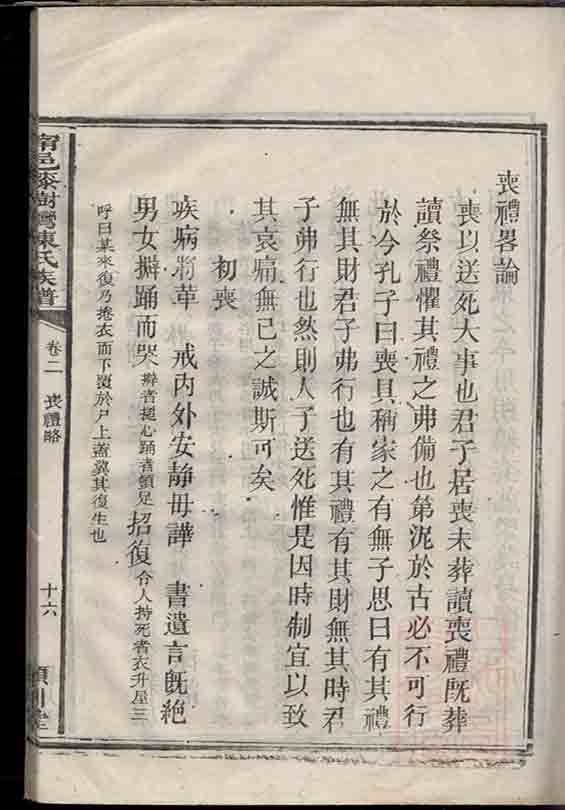 喪禮畧論
喪以送死大事也君子居喪未葬讀喪禮既葬
讀祭禮懼其禮之弗備也第泥於古必不可行
於今孔子曰喪具稱家之有無子思曰有其禮
無其財君子弗行也有其禮有其財無其時君
子弗行也然則人子送死惟是因時制宜以致
其哀痛無已之誠斯可矣
初喪
疾病將革 戒内外安靜毋譁 書遺言既絶
男女擗踊而哭 擗者搥心踊者頓足 招復 令人持死者衣升屋三
呼曰某來復乃捲衣而下覆於尸上蓋冀其復生也
甯邑漆樹灣陳氏族譜
卷二 喪禮略
十六
潁川堂